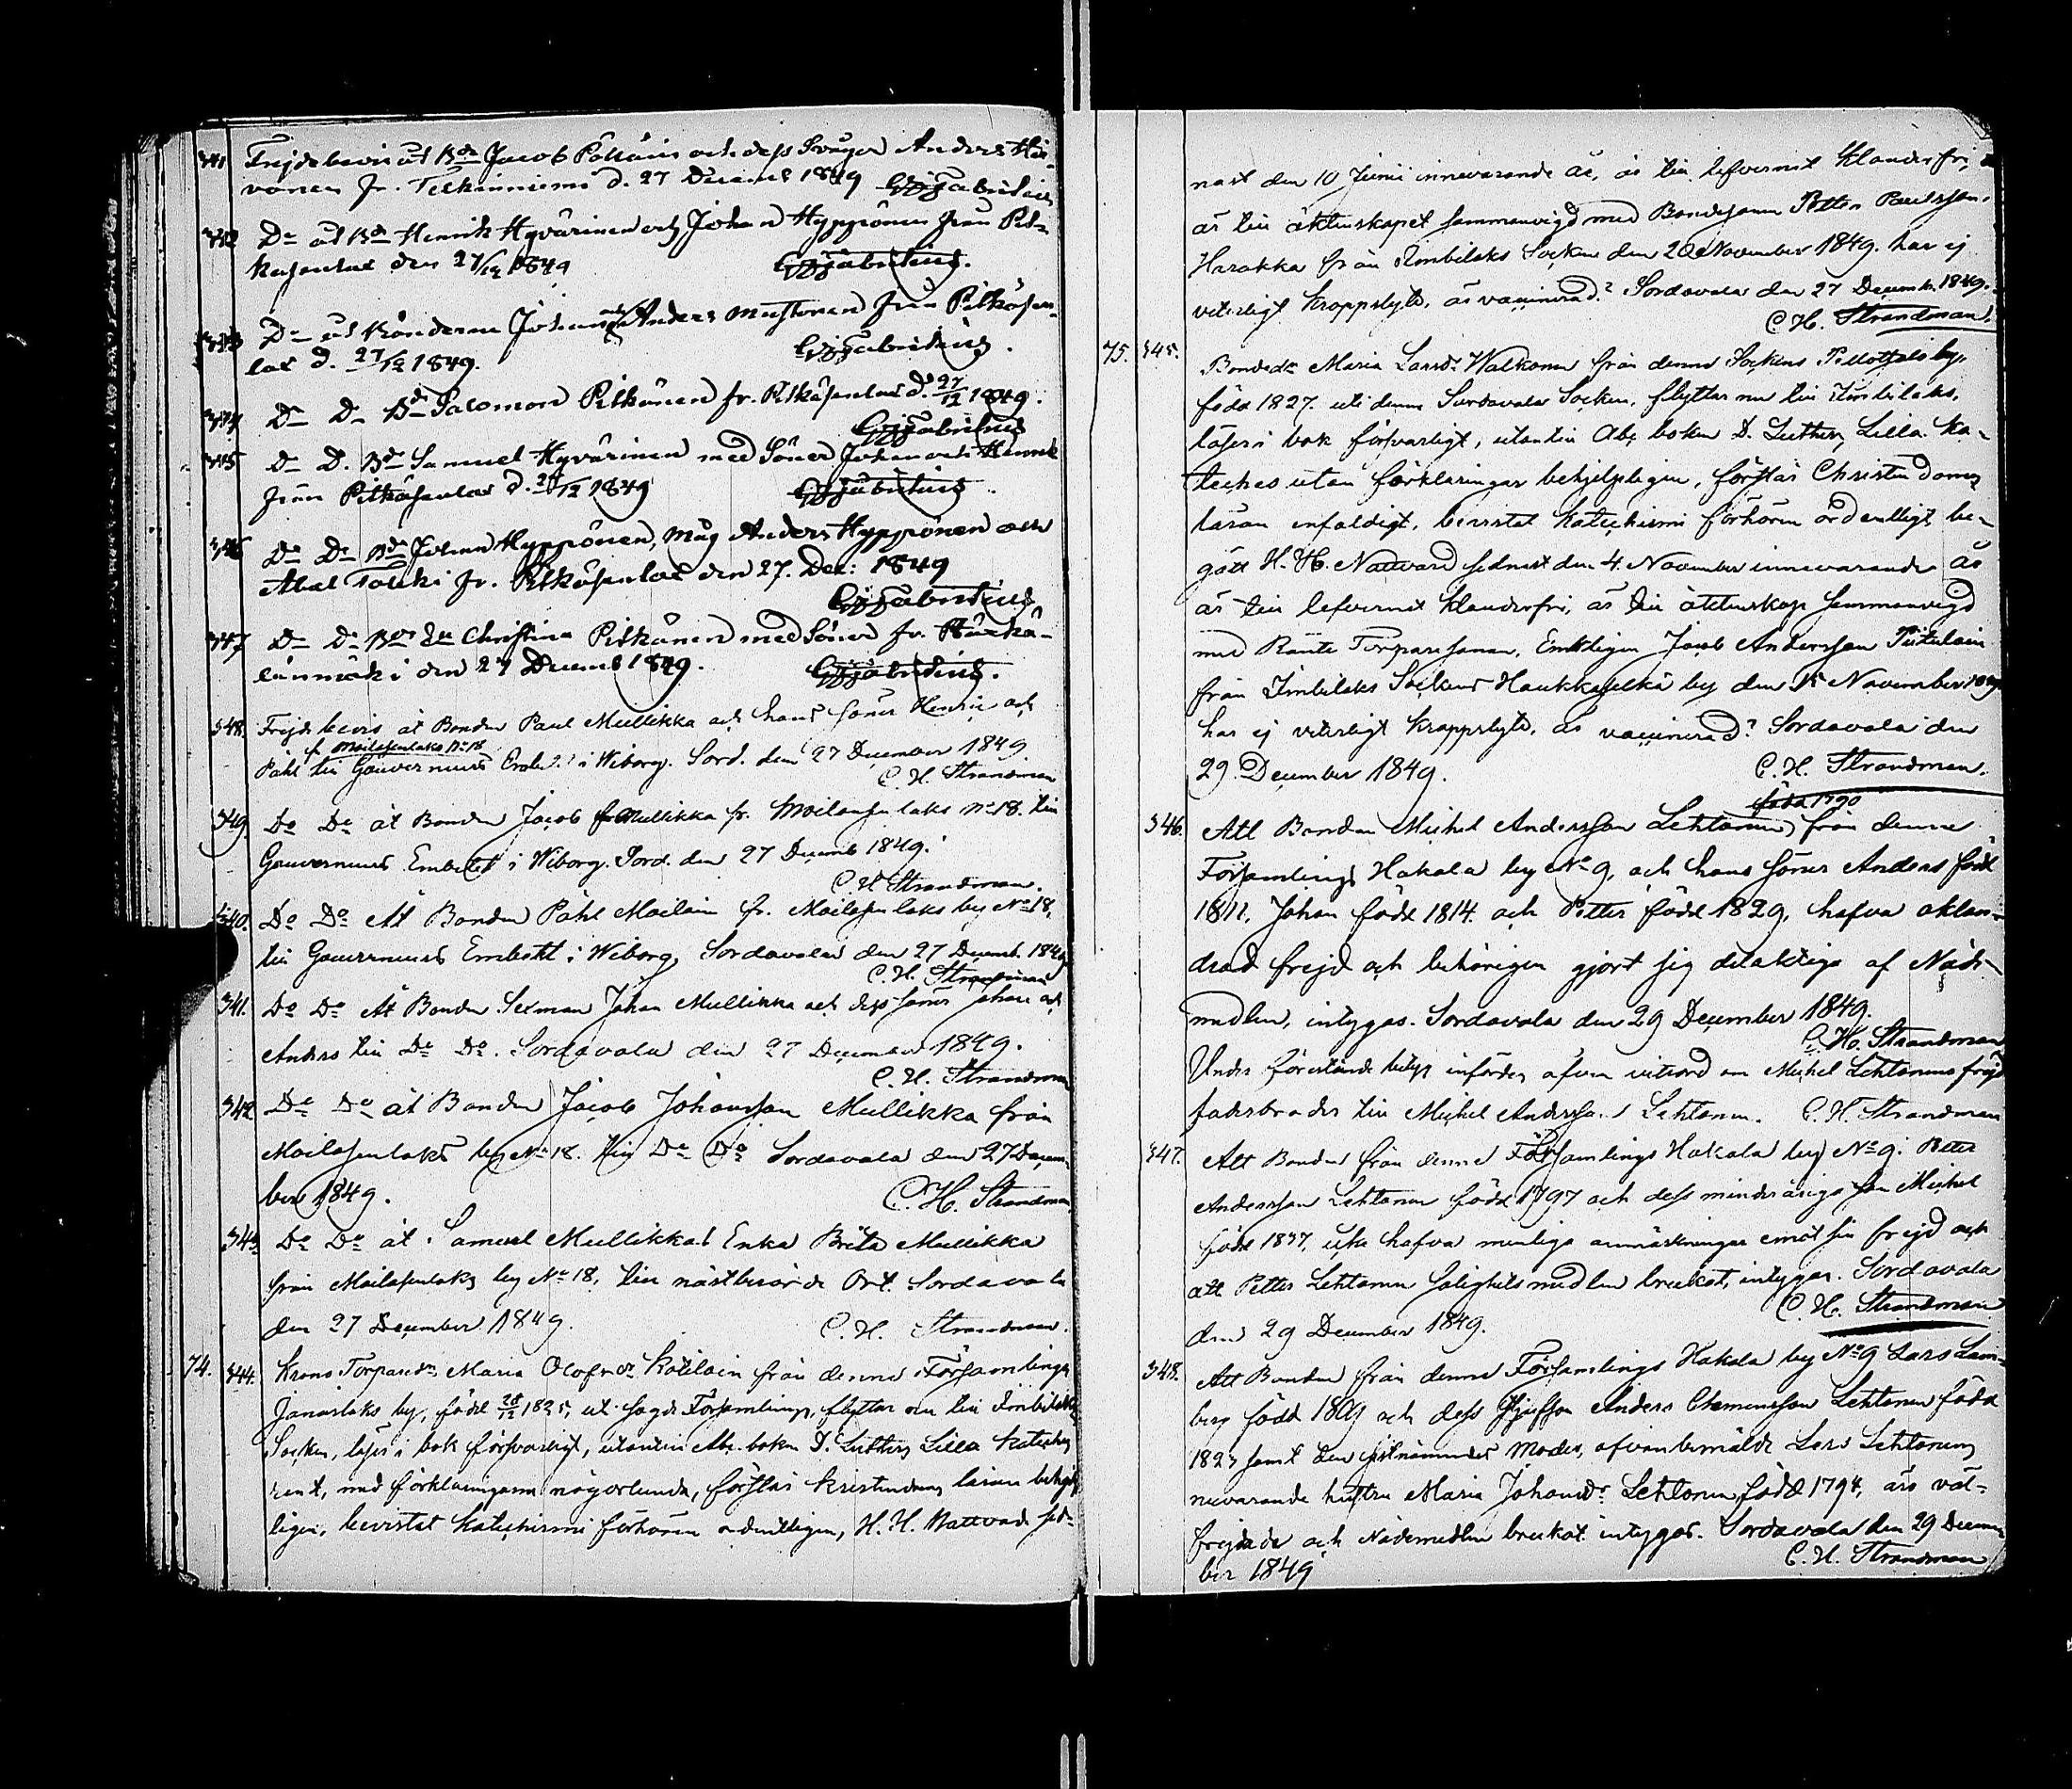 341 Frejdebevis åt Bdn Jacob Pöllänen och dess Svåger Anders Hir-
vonen fr. Telkinniemi d. 27 Decemb 1849
342 Do åt Bdn Henrik Hyvärinen och Johan Hyppönen från Pit-
käjenlax den 27/12 1849
343 Do åt Bönderne Johan och Anders Mustonen från Pitkäjen-
lax d. 27/12 1849.
344 Do Do Bdn Salomon Pitkänen fr. Pitkäjenlax d. 27/12 1849.
345 Do Do Bdn Samuel Hyvärinen med Söner Johan och Henrik
från Pitkäjenlax d. 27/12 1849
346 Do Do Bdn Johan Hyppönen, måg Anders Hyppönen och
Abel Tolski fr. Pitkäjenlax den 27. Dec: 1849
347 Do Do Bde Ea Christina Pitkänen med Söner fr.
linmäki den 27 Decemb 1849.
348. Frejdebevis åt Bonden Paul Mullikka och hans söner Henric och
fr Mailasenlaks No 18
Påhl till Gouverneurs i Wiborg. Sord. den 27 December 1849
C. H. Strandman
349. Do Do åt Bonden Jacob Mullikka fr. Mailasenlaks No 18. till
Gouverneurs Embetet i Wiborg. Sord. den 27 Decemb 1849.
C. H. Strandman.
340. Do Do Åt Bonden Påhl Mailain fr. Mailasenlaks by No 18,
till Gouverneurs Embetet i Wiborg, Sordavala den 27 Decemb. 1849
C. H. Strandman
341. Do Do Åt Bonden Johan Mullikka och dess söner Johan och
Anders till Do Do. Sordavala den 27 December 1849.
C. H. Strandman
342 Do Do åt Bonden Jacob Johansson Mullikka från
Mailasenlaks by No 18. till Do Do Sordavala den 27 Decem-
ber 1849.
C. H. Strandman
343 Do Do åt Samuel Mullikkas Enka Brita Mullikka
från Mailasenlaks by No 18, till näst berörde Ort. Sordavala
den 27 December 1849.
C. H. Strandman.
74. 344. Krono Torparedn Maria Olofsdr Kötiläin från denne Församlings
Janaslaks by, född 28/12 1825, ut. sagde Församling, flyttar nu till Imbilaks
Socken, läser i bok försvarligt, utantill Abc-boken D. Luthers Lilla Kateches
rent, med förklaringarna någorlunda, förstår kristendoms läran behjelp-
ligen, bevistat Katechismi förhören ordentligen, H. H. Nattvard sed-
nast den 10 Junii innevarande år, är till lefvernet klanderfri,
är till äktenskapet sammanvigd med Bondesonen Petter Paulsson
Harakka från Imbilaks Socken den 20 November 1849. har ej
veterligt kroppslyte, är vaccinerad? Sordavala den 27 Decemb. 1849.
C. H. Strandman.
75. 345. Bondedn Maria Larsdr Walkonen från denne Sockens by,
född 1827. uti denne Sordavala Socken, flyttar nu till Imbilaks,
läser i bok försvarligt, utantill Abc boken D. Luthers Lilla Ka-
teches utan förklaringar behjelpligen, förstår Christendoms
läran enfaldigt, bevistat Katechismi förhören ordentligt, be-
gått H. H. Nattvard sednast den 4. November innevarande år
är till lefvernet klanderfri, är till äktenskap sammanvigd
med Ränte Torparesonen, Enklingen Jacob Andersson
från Imbilaks Sockens Haukkaselkä by den 15 November 1849
har ej veterligt kroppslyte, är vaccinerad? Sordavala den
29 December 1849.
C. H. Strandman.
född 1790
346. Att Bonden Michel Andersson Lehtonen från denne
Församlings Hakala by No 9, och hans söner Anders född
1811. Johan född 1814. och Petter född 1829, hafva oklan-
drad frejd och behörigen gjort sig delaktiga af Nåde-
medlen, intygas. Sordavala den 29 December 1849.
C. H. Strandman
Under förestående betyg infördes äfven vitsord om Michel Lehtonens frejd
fadersbroder till Michel Andersson Lehtonen. C. H. Strandman
347. Att Bonden från denne Församlings Hakala by No 9. Petter
Andersson Lehtonen född 1797 och dess minderåriga son Michel
född 1837, icke hafva menliga anmärkningar emot sin frejd och
att Petter Lehtonen Salighetsmedlen brukat, intygas. Sordavala
den 29 December 1849.
C. H. Strandman
348. Att Bonden från denne Församlings Hakala by No 9 Lars Lam-
berg född 1809 och dess Styfson Anders Clemensson Lehtonen född
1823 samt den sistnämndes Moder, ofvanbemälde Lars Lehtonens
nuvarande hustru Maria Johansdr Lehtonen född 1794, äro väl-
frejdade och Nådemedlen brukat intygas. Sordavala den 29 Decem-
ber 1849
C. H. Strandman